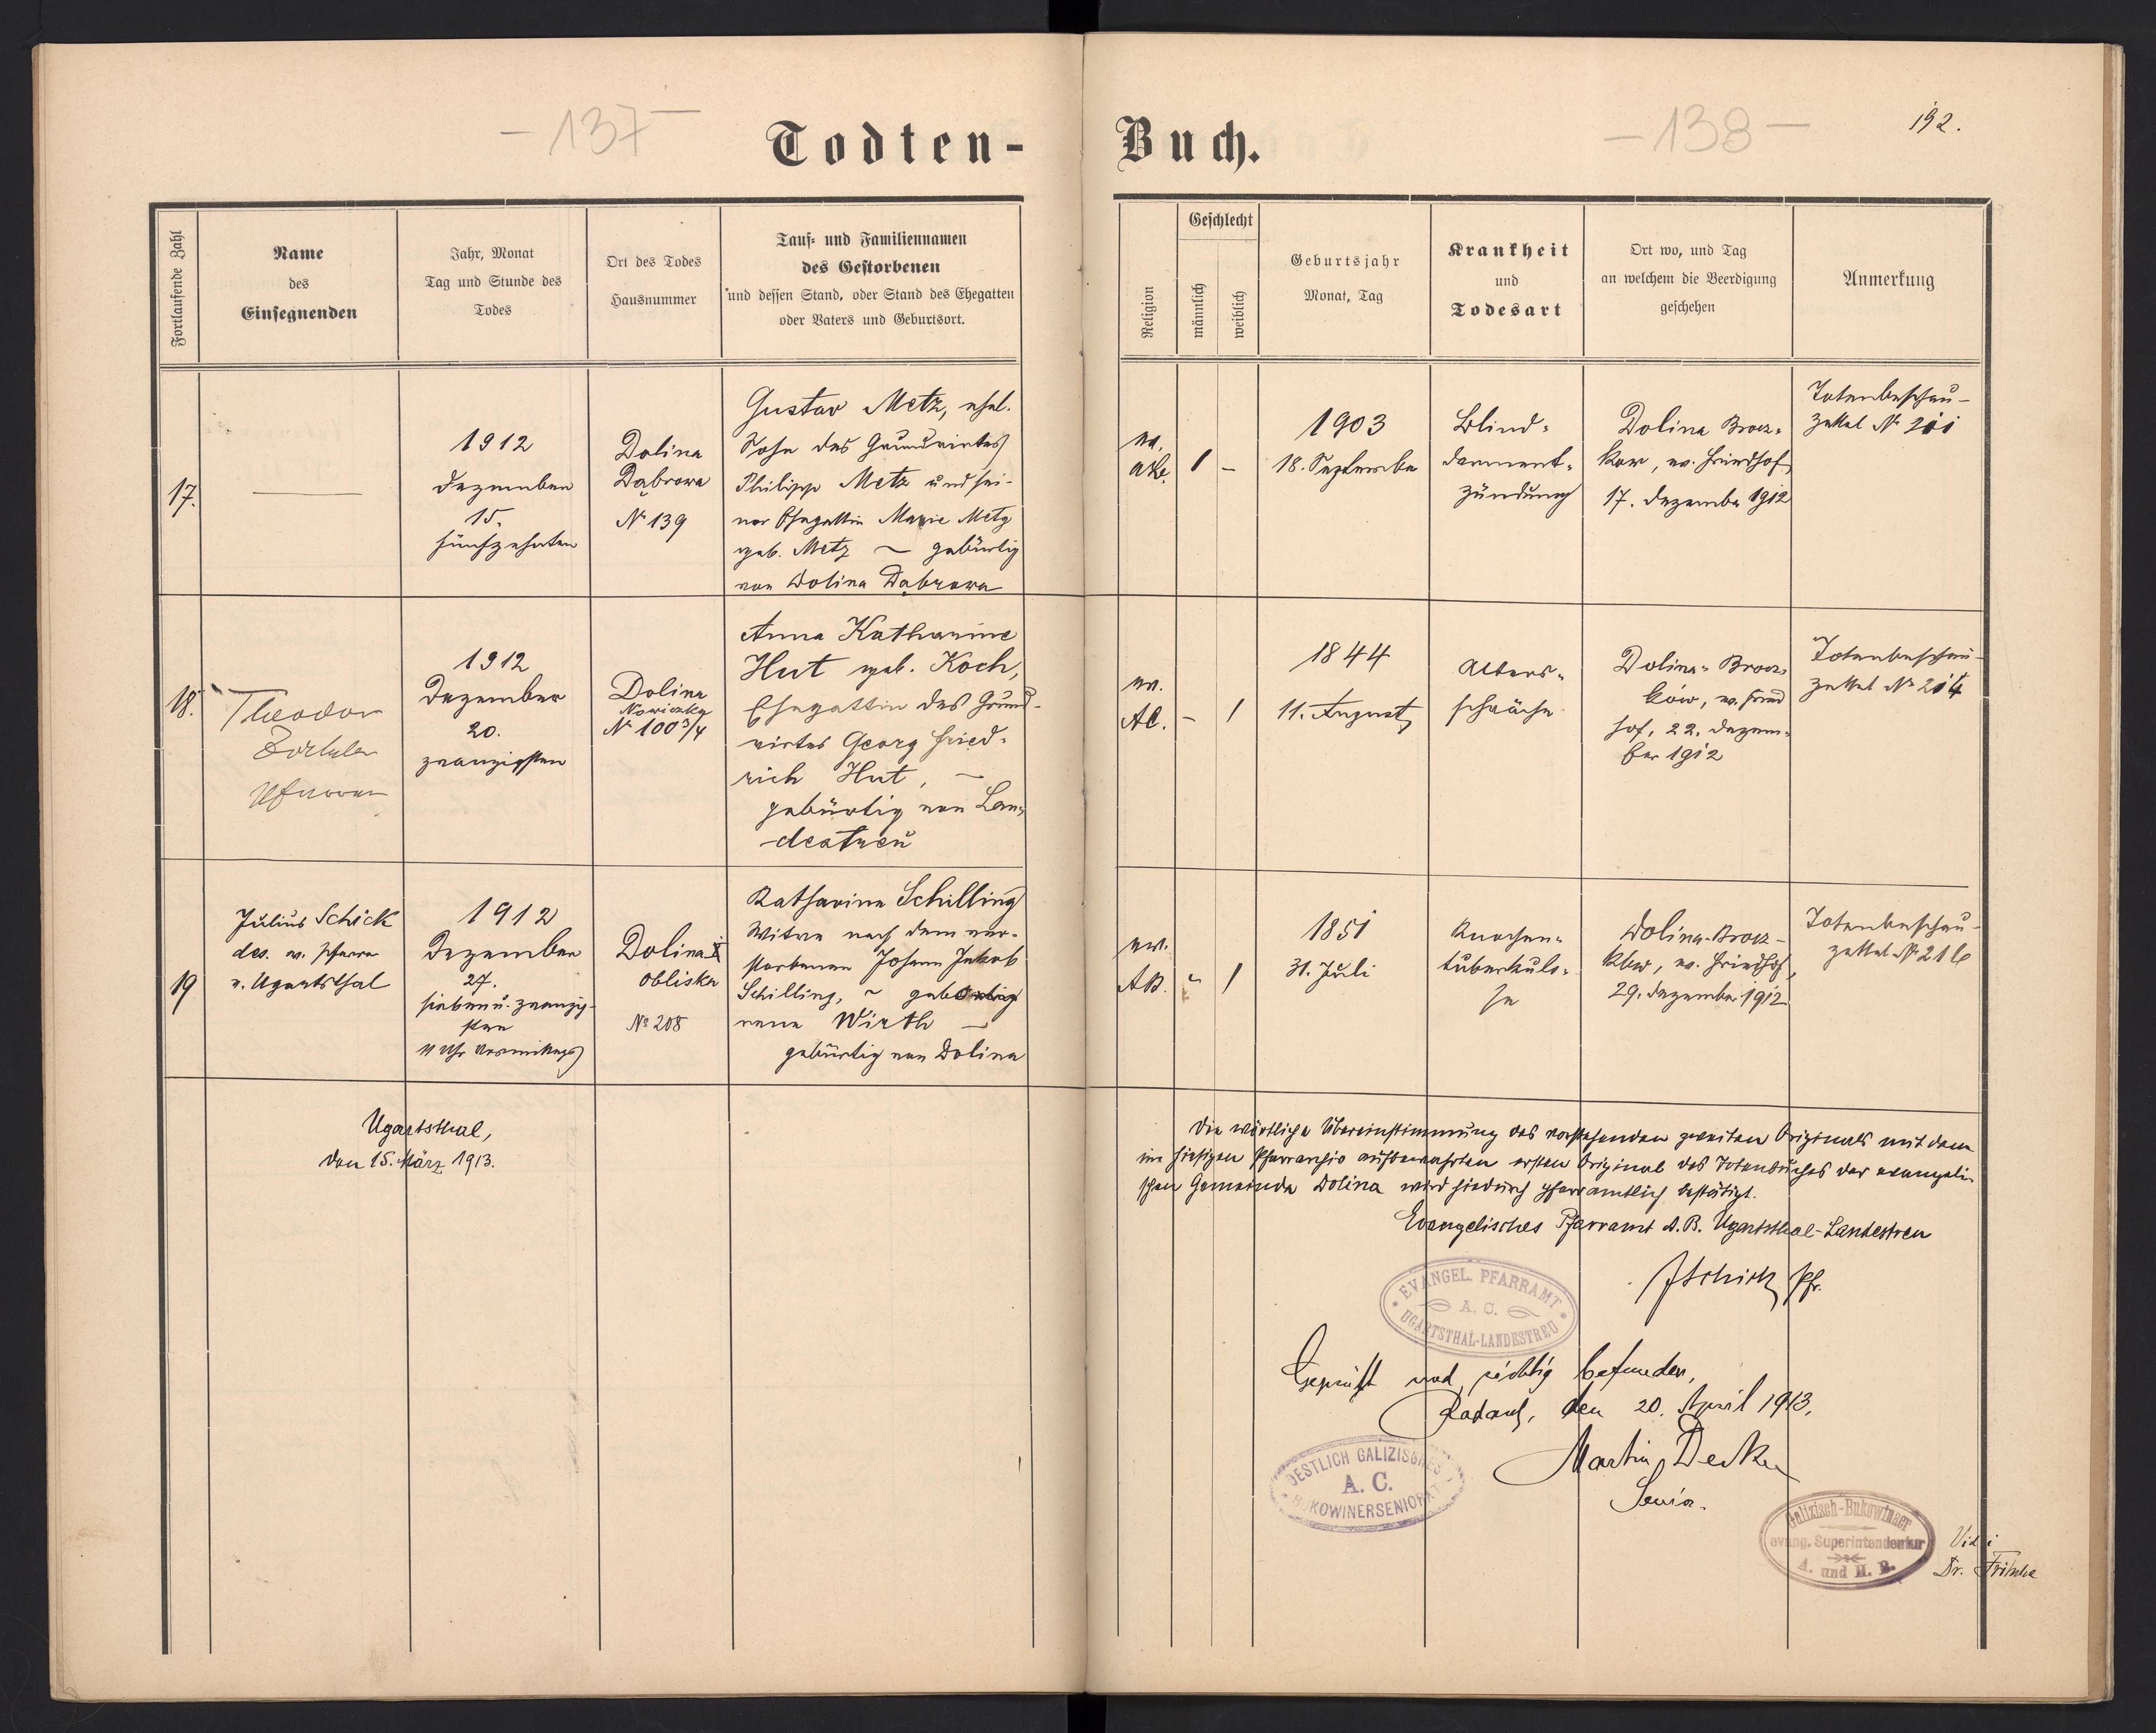 - 137 -
Todten-
Buch.
- 138 -
192.
Fortlaufende Zahl
Name
des
Einsegnenden
Jahr, Monat
Tag und Stunde des
Todes
Ort des Todes
Hausnummer
Tauf- und Familiennamen
des Gestorbenen
und dessen Stand, oder Stand des Ehegatten
oder Vaters und Geburtsort.
Religion
Geschlecht
männlich
weiblich
Geburtsjahr
Monat, Tag
Krankheit
und
Todesart
Ort wo, und Tag
an welchem die Beerdigung
geschehen
Anmerkung
17.
1912
Dezember
15.
fünfzehnten
Dolina
Dąbrowa
Nº 139
Gustav Metz, ehel.
Sohn des Grundwirtes
Philipp Metz und sei-
ner Ehegattin Marie Metz
geb. Metz ~ gebürtig
von Dolina Dąbrowa
ev.
1 -
1903
18. Septembe
Blind-
darment-
zündung
Dolina Brocz-
kow, ev. Friedhof
17. Dezember 1912
Totenbeschau-
zettel Nº 211
18.
Theodor
Pfarrer
1912
Dezember
20.
zwanzigsten
Dolina
Nowiczka
Nº 100 3/4
Anna Katharine
Hut geb. Koch,
Ehegattin des Grund-
wirtes Georg Fried-
rich Hut, ~
gebürtig von Lan-
destreu
ev.
AC.
- 1
1844
11. August
Alters-
schwäche
Dolina-Brocz-
ków, ev. Fried
hof, 22. Dezem-
ber 1912
Totenbeschau-
zettel Nº 214
19
Julius Schick
des. ev. Pfarrer
v. Ugartsthal
1912
Dezember
27.
siebenu. zwanzig-
sten
11 Uhr Vormittags
Dolina
Obliska
Nº 208
Katharina Schilling
Witwe nach dem ver-
storbenen Johann Jakob
Schilling, ~ gebo
rene Wirth —
gebürtig von Dolina
ev.
AB.
- 1
1851
31. Juli
Knochen-
tuberkulo-
se
Dolina-Brocz-
kow, ev. Friedhof,
29. Dezember 1912
Totenbeschau-
zettel Nº 216
Ugartsthal,
den 15. März 1913.
Die wörtliche Übereinstimmung des vorstehenden zweiten Originals mit dem
im hiesigen Pfarrarchiv aufbewahrten ersten Original des Totenbuches der evangeli-
schen Gemeinde Dolina wird hiedurch pfarramtlich bestätigt.
Evangelisches Pfarramt A.B. Ugartsthal-Landestreu
JSchick Pfr.
EVANGEL. PFARRAMT
A. C.
UGARTSTHAL-LANDESTREU
Geprüft und richtig befunden,
Radautz, den 20. April 1913.
Martin Decker
Senior.
OESTLICH GALIZISCHES
A. C.
BUKOWINERSENIORAT
Galizisch-Bukowinaer
evang. Superintendentur
A. und H. B.
Vidi
Dr. Fritsche